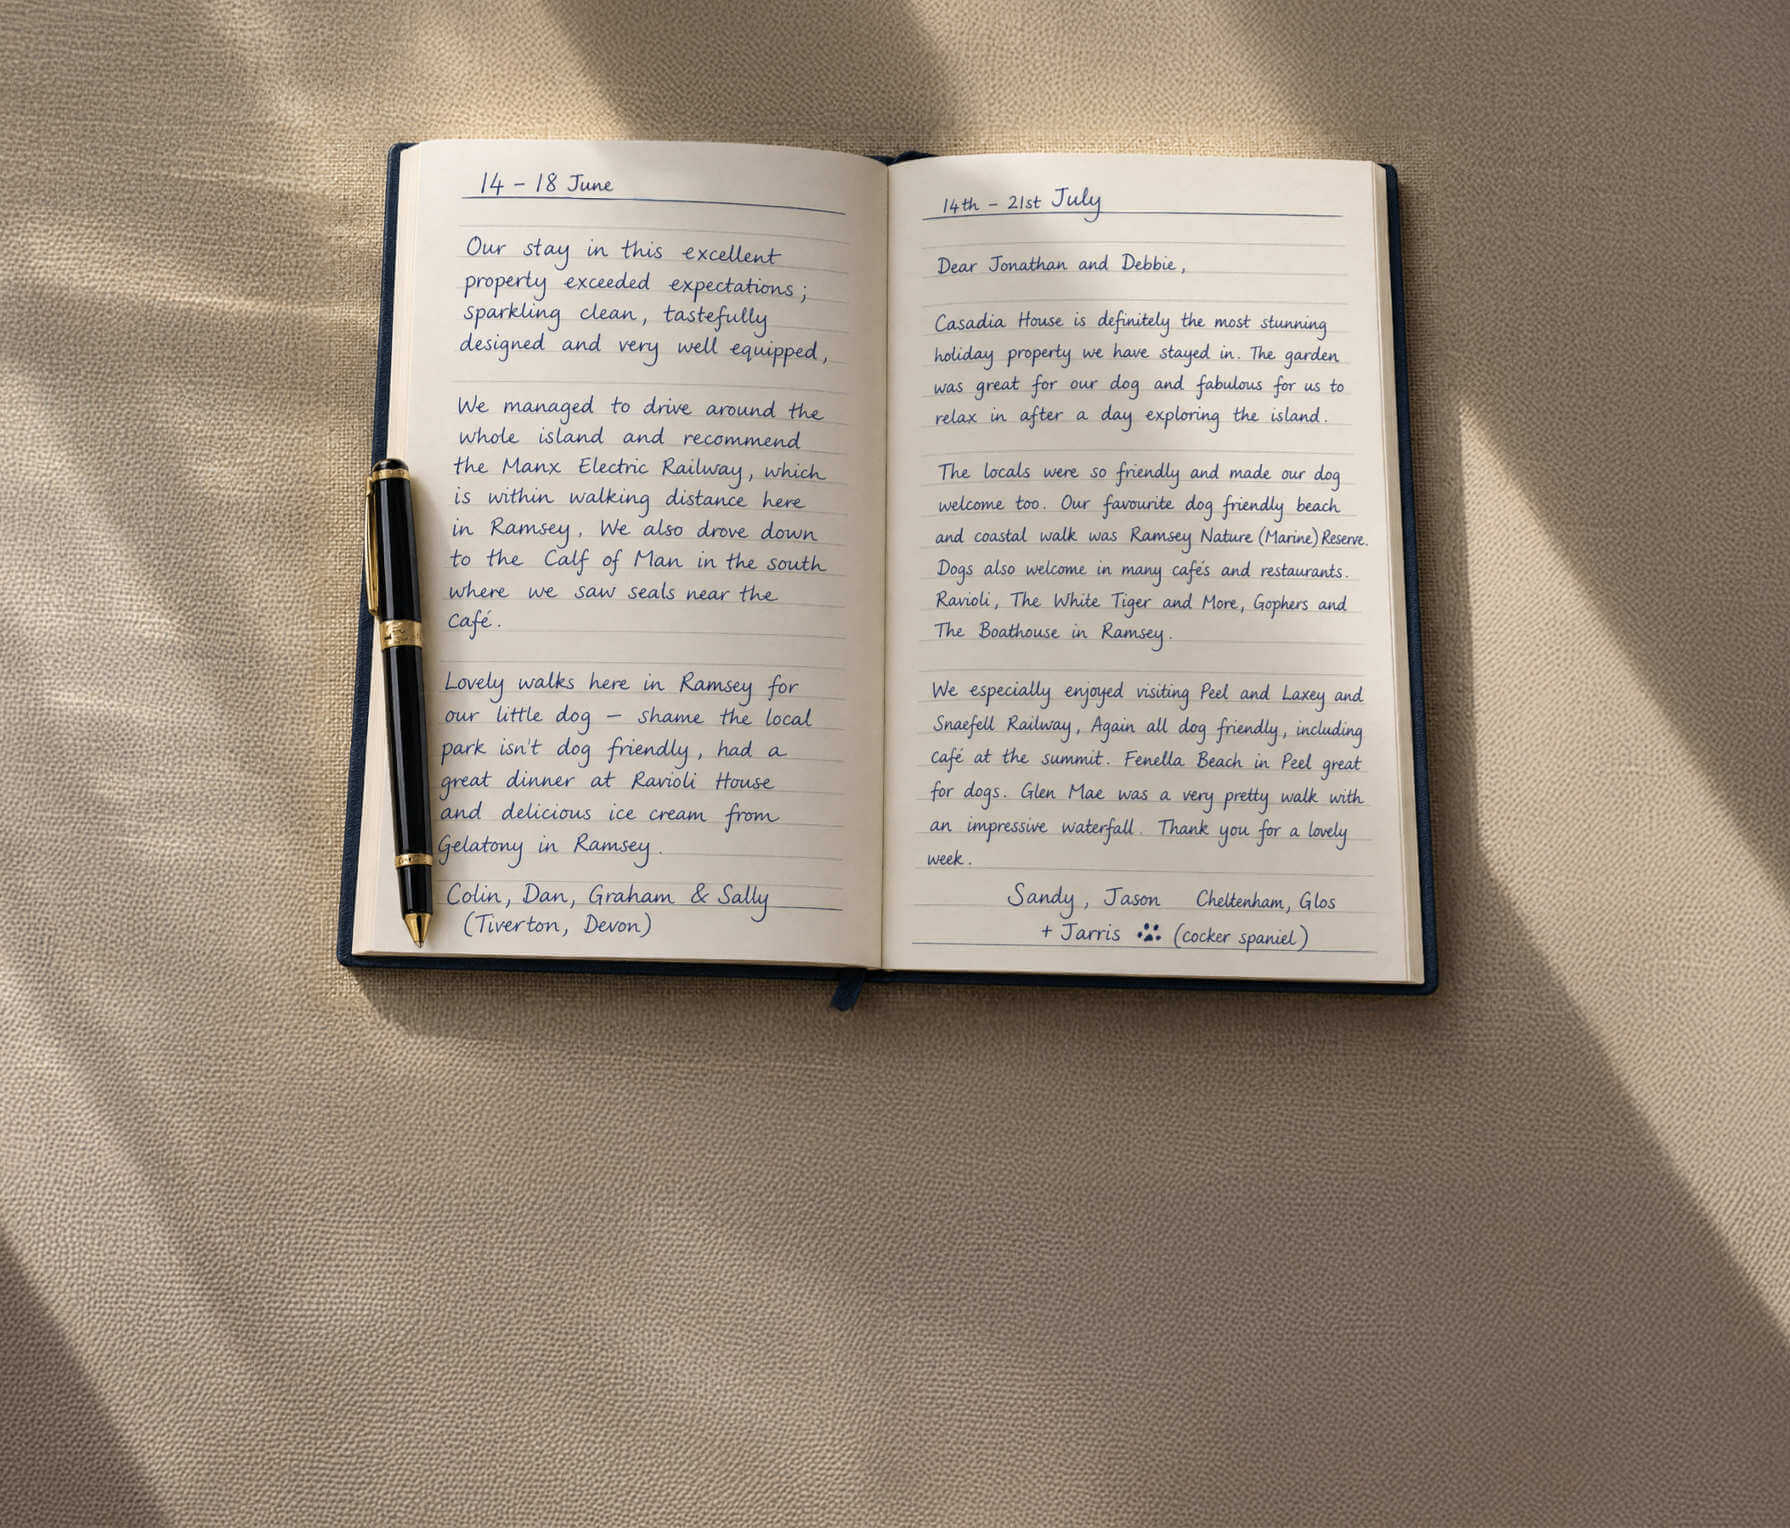 14 – 18 June
Our stay in this excellent
property exceeded expectations;
sparkling clean, tastefully
designed and very well equipped,
We managed to drive around the
whole island and recommend
the Manx Electric Railway, which
is within walking distance here
in Ramsey. We also drove down
to the Calf of Man in the south
where we saw seals near the
café.
Lovely walks here in Ramsey for
our little dog – shame the local
park isn't dog friendly, had a
great dinner at Ravioli House
and delicious ice cream from
Gelatony in Ramsey.
Colin, Dan, Graham & Sally
(Tiverton, Devon)
14th – 21st July
Dear Jonathan and Debbie,
Casadia House is definitely the most stunning
holiday property we have stayed in. The garden
was great for our dog and fabulous for us to
relax in after a day exploring the island.
The locals were so friendly and made our dog
welcome too. Our favourite dog friendly beach
and coastal walk was Ramsey Nature (Marine) Reserve.
Dogs also welcome in many cafés and restaurants.
Ravioli, The White Tiger and More, Gophers and
The Boathouse in Ramsey.
We especially enjoyed visiting Peel and Laxey and
Snaefell Railway, Again all dog friendly, including
café at the summit. Fenella Beach in Peel great
for dogs. Glen Mae was a very pretty walk with
an impressive waterfall. Thank you for a lovely
week.
Sandy, Jason Cheltenham, Glos
+ Jarris (cocker spaniel)